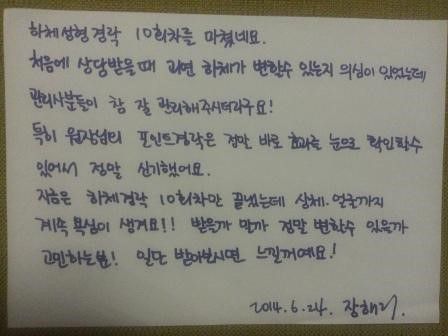 하체성형경락 10회차를 마쳤네요.
처음에 상담받을때 과연 하체가 변할수 있는지 의심이 있었는데
관리사분들이 참 잘 관리해주시더라구요!
특히 원장님의 포인트경락은 정말 바로 효과를 눈으로 확인할수
있어서 정말 신기했어요.
지금은 하체경락 10회차만 끝냈는데 상체. 얼굴까지
계속 욕심이 생겨요!! 받을까 말까 정말 변할수 있을까
고민하는분! 일단 받아보시면 느낄꺼예요!
2014.6.24. 장해리